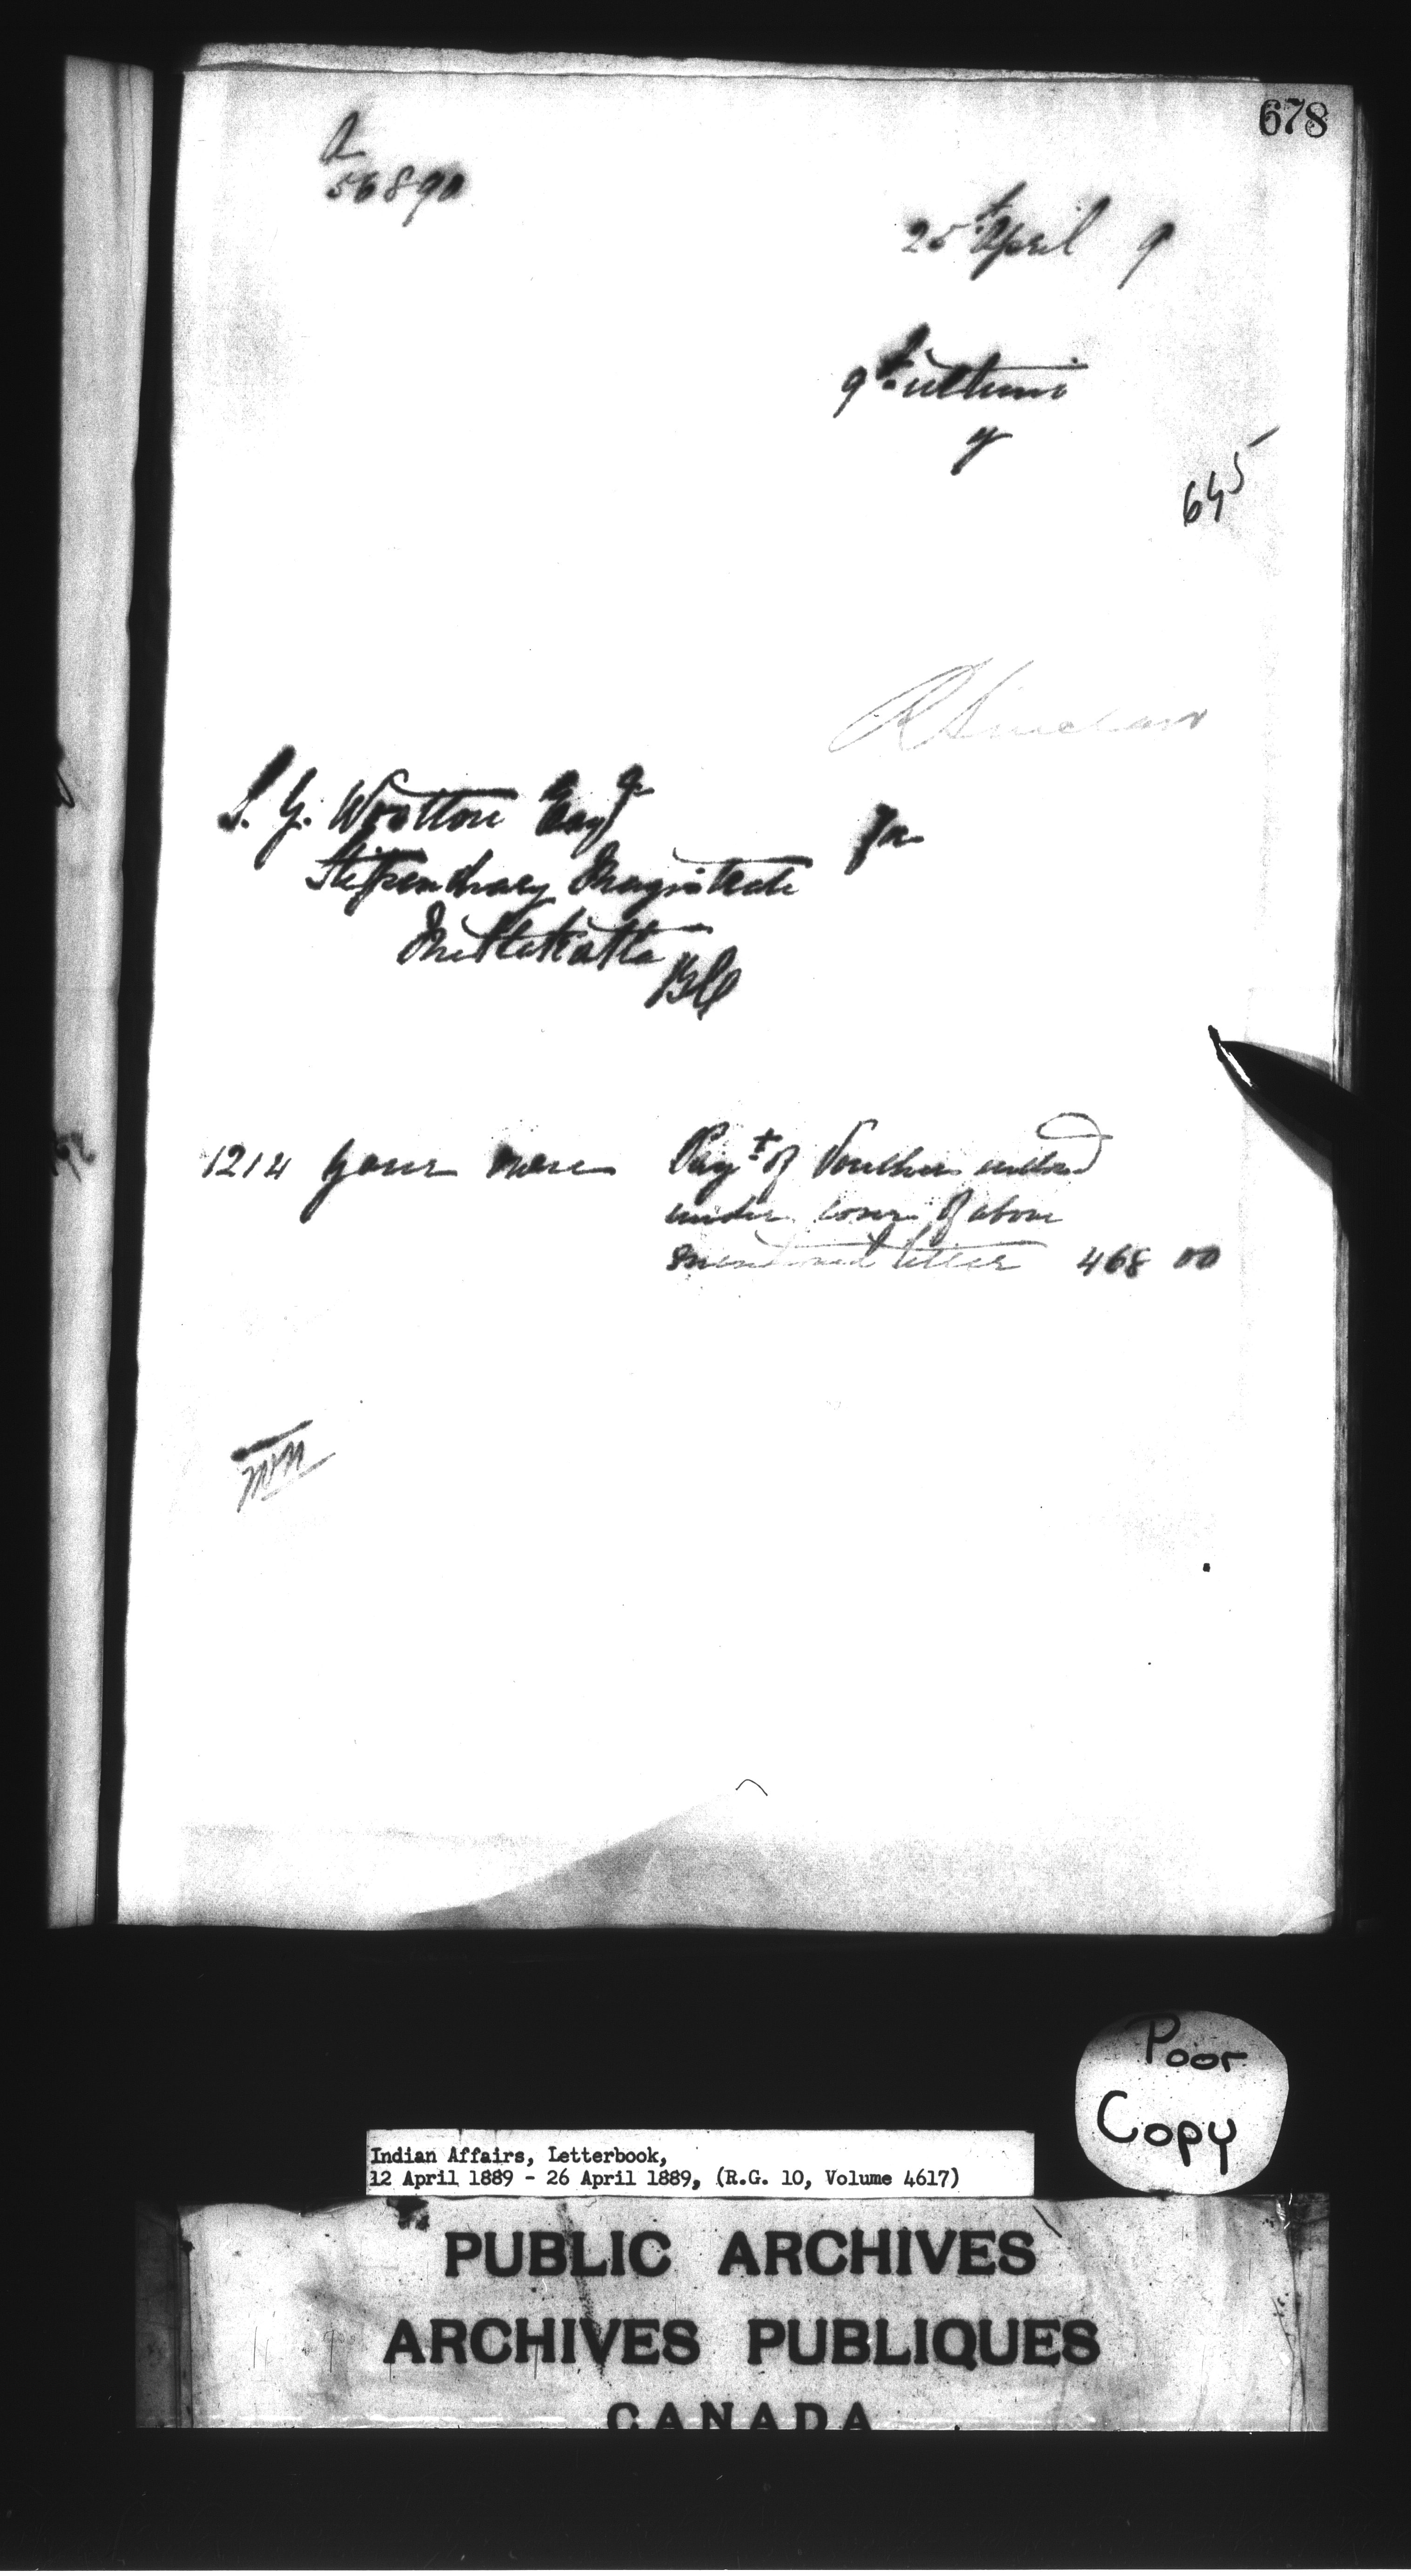 678
56890
25th April 9
9th ultimo
y
645
R Sinclair
S. Y. Wootton Esqr
Stipendiary Magistrate
Mettakatla
BC
1214 your name Payt of Vouchers enclosed
under cover of above
mentioned letter 468 00
Poor
Copy
Indian Affairs, Letterbook,
12 April 1889 - 26 April 1889, (R.G. 10, Volume 4617)
PUBLIC ARCHIVES
ARCHIVES PUBLIQUES
CANADA